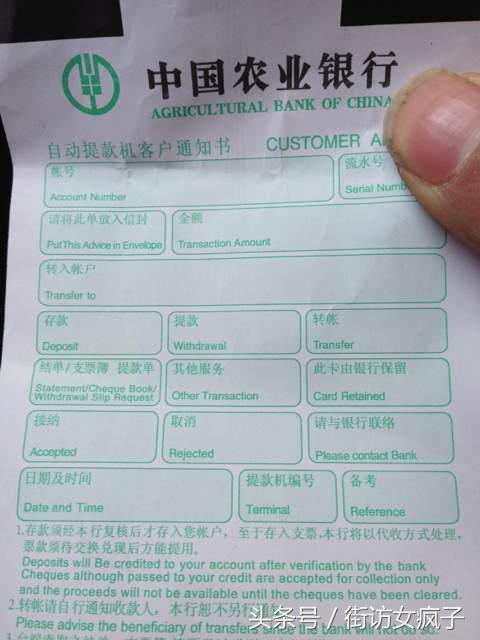 中国农业银行
AGRICULTURAL BANK OF CHINA
自动提款机客户通知书 CUSTOMER
帐号 流水号
Account Number Serial
请将此单放入信封 金额
PutThis Advice in Envelope Transaction Amount
转入帐户
Transfer to
存款 提款 转帐
Deposit Withdrawal Transfer
结单/支票簿 提款单 其他服务 此卡由银行保留
Statement/Cheque Book/ Other Transaction Card Retained
Withdrawal Slip Request
接纳 取消 请与银行联络
Accepted Rejected Please contact Bank
日期及时间 提款机编号 备考
Date and Time Terminal Reference
1.存款须经本行复核后才存入您帐户，至于存入支票,本行将以代收方式处理,
票款须待交换兑现后方能提用。
Deposits will Be credited to your account after verification by the bank
Cheques although passed to your credit are accepted for collection only
and the proceeds will not be available until the cheques have been cleared.
2.转帐请自行通知收款人，本行恕不另行通知
Please advise the beneficiary of transfers since the bank will not do so.
头条号 / 街访女疯子